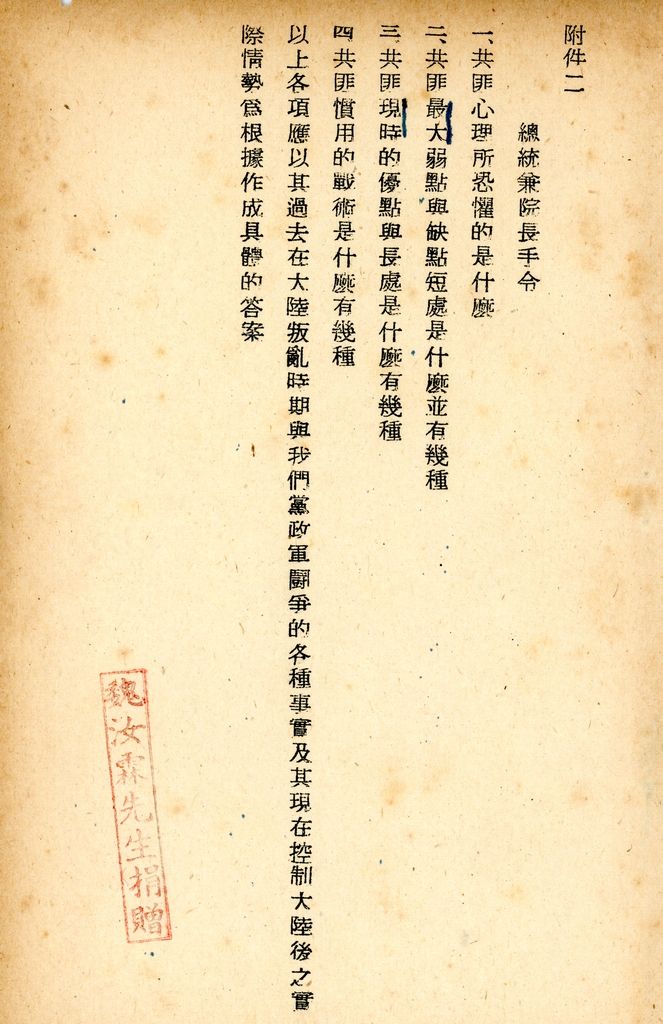 附件二
總統兼院長手令
一、共匪心理所恐懼的是什麼
二、共匪最大弱點與缺點短處是什麼並有幾種
三、共匪現時的優點與長處是什麼有幾種
四共匪慣用的戰術是什麼有幾種
以上各項應以其過去在大陸叛亂時期與我們黨政軍鬪爭的各種事實及其現在控制大陸後之實
際情勢爲根據作成具體的答案
魏汝霖先生捐贈